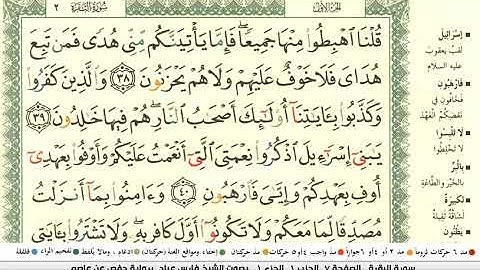 الجزء الأول
سورة البقرة ٢
قُلْنَا ٱهْبِطُوا۟ مِنْهَا جَمِيعًا ۖ فَإِمَّا يَأْتِيَنَّكُم مِّنِّى هُدًى فَمَن تَبِعَ
هُدَاىَ فَلَا خَوْفٌ عَلَيْهِمْ وَلَا هُمْ يَحْزَنُونَ ٣٨ وَٱلَّذِينَ كَفَرُوا۟
وَكَذَّبُوا۟ بِـَٔايَـٰتِنَآ أُو۟لَـٰٓئِكَ أَصْحَـٰبُ ٱلنَّارِ ۖ هُمْ فِيهَا خَـٰلِدُونَ ٣٩
يَـٰبَنِىٓ إِسْرَٰٓءِيلَ ٱذْكُرُوا۟ نِعْمَتِىَ ٱلَّتِىٓ أَنْعَمْتُ عَلَيْكُمْ وَأَوْفُوا۟ بِعَهْدِىٓ
أُوفِ بِعَهْدِكُمْ وَإِيَّـٰىَ فَٱرْهَبُونِ ٤٠ وَءَامِنُوا۟ بِمَآ أَنزَلْتُ
مُصَدِّقًا لِّمَا مَعَكُمْ وَلَا تَكُونُوٓا۟ أَوَّلَ كَافِرٍۭ بِهِۦ ۖ وَلَا تَشْتَرُوا۟ بِـَٔايَـٰتِى
إسرائيل
لقب يعقوب
عليه السلام
فارهبون
فخافون في
نقضكم العهد
لا تلبسوا
لا تخلطوا
بالبر
بالخير والطاعة
لكبيرة
لشاقة ثقيلة
يظنون
مد ٦ حركات لزوما مد ٢ أو ٤ أو ٦ جوازا مد واجب ٤ أو ٥ حركات مد حركتان إخفاء، ومواقع الغنة (حركتان) إدغام، وما لا يلفظ تفخيم الراء قلقلة
سورة البقرة الصفحة ٧ الحزب ١ الجزء ١ بصوت الشيخ فارس عباد برواية حفص عن عاصم